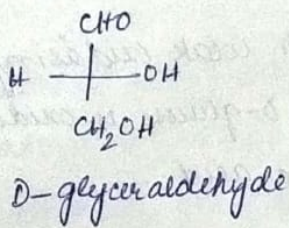 CHO
H OH
CH₂OH
D-glyceraldehyde